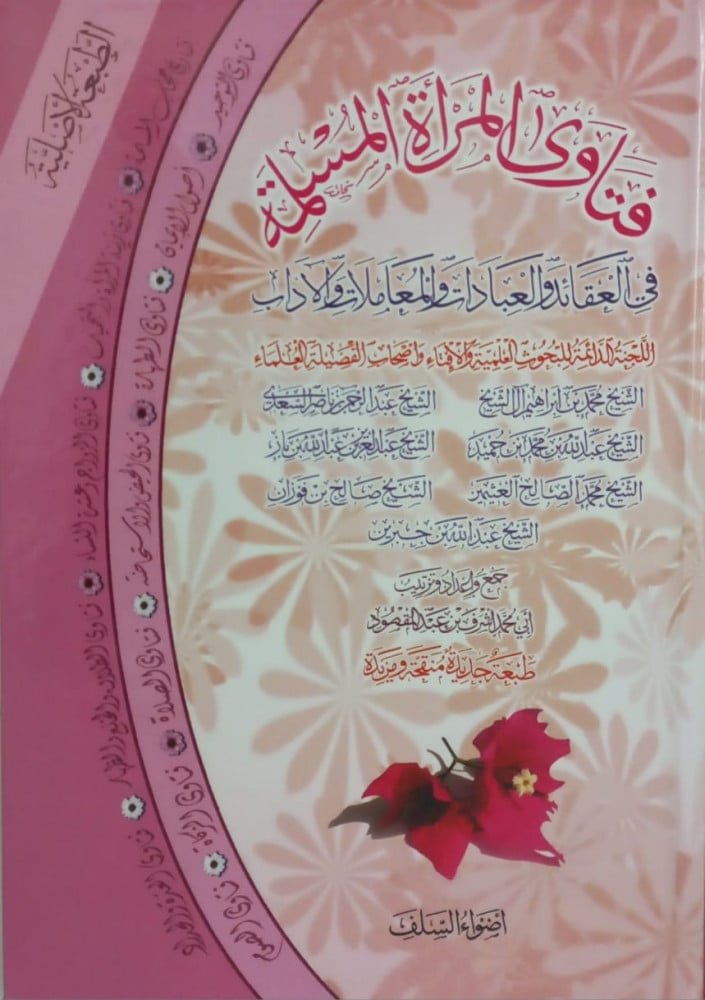 الطبعة الأصلية
فتاوى المرأة المسلمة
في العقائد والعبادات والمعاملات والآداب
اللجنة الدائمة للبحوث العلمية والإفتاء وأصحاب الفضيلة العلماء
الشيخ محمد بن إبراهيم آل الشيخ
الشيخ عبد الرحمن ناصر السعدي
الشيخ عبد الله بن محمد بن حميد
الشيخ عبد العزيز بن عبد الله بن باز
الشيخ محمد الصالح العثيمين
الشيخ صالح بن فوزان
الشيخ عبد الله بن جبرين
جمع وإعداد وترتيب
أبي محمد أشرف بن عبد المقصود
طبعة جديدة منقحة ومزيدة
أضواء السلف
فتاوى التوحيد
أصول الإيمان
فتاوى الطهارة
فتاوى الحيض والاستحاضة
فتاوى الصلاة
فتاوى الزكاة